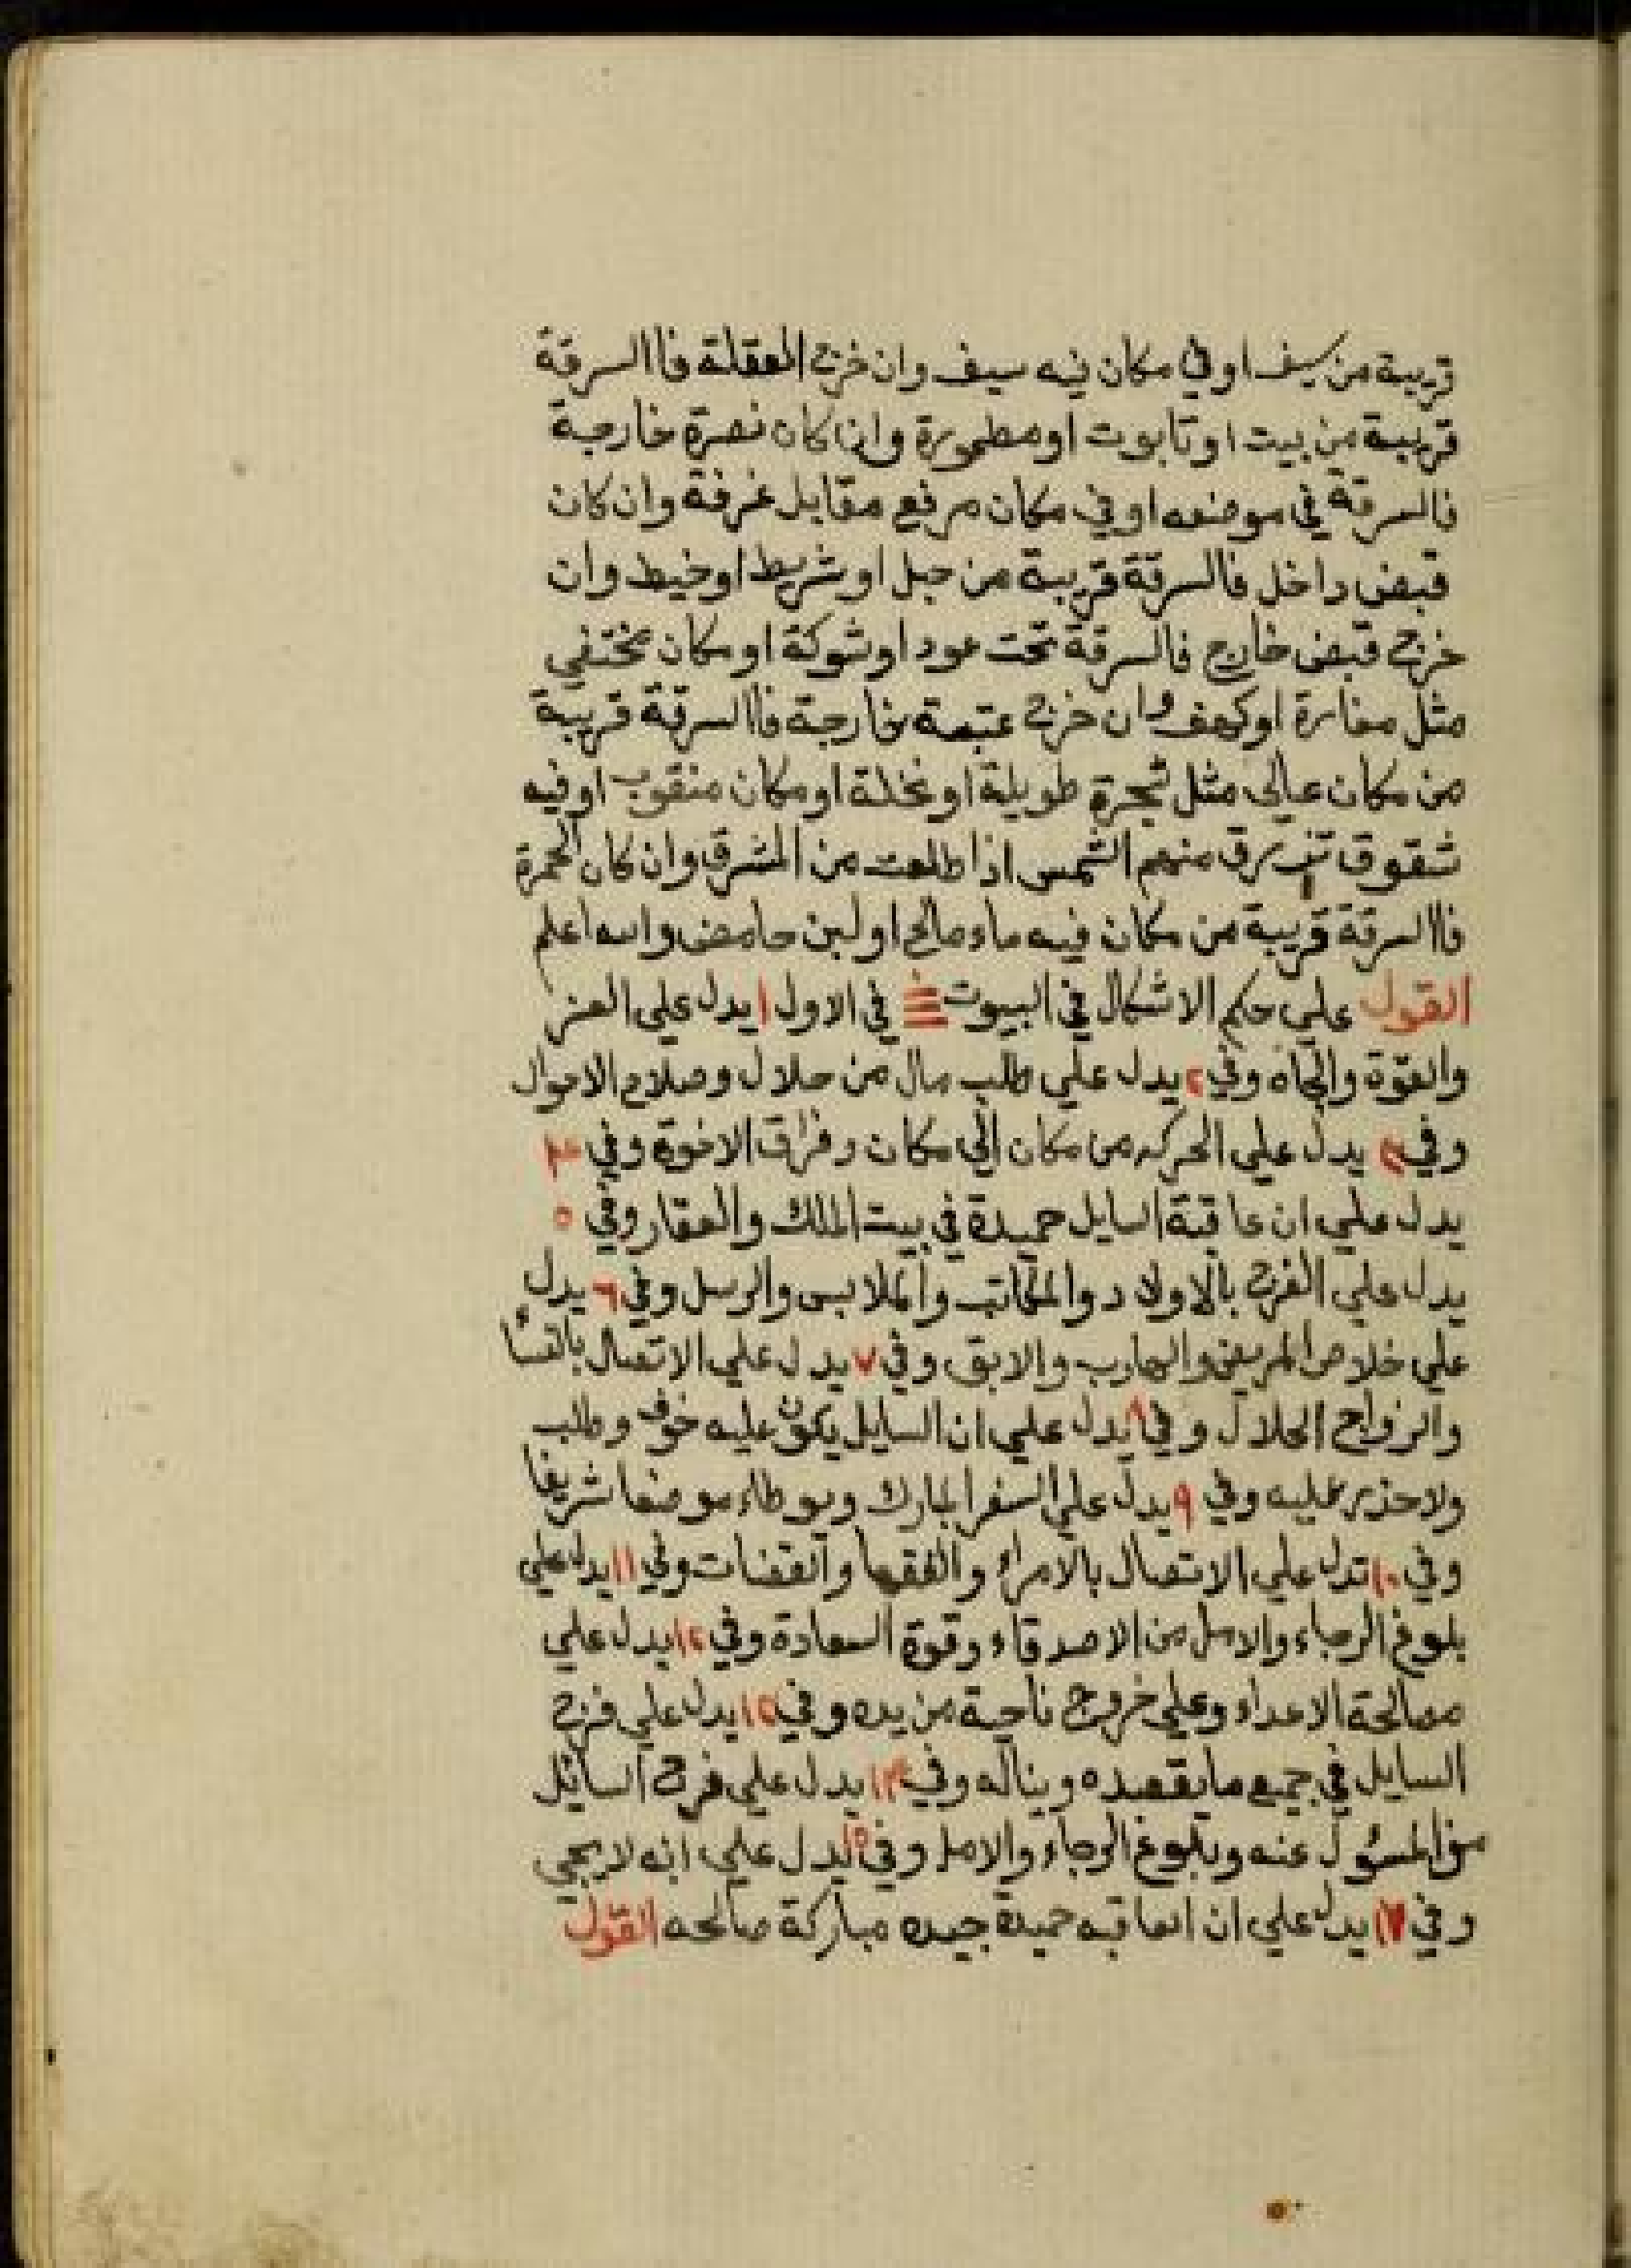 قريبة من سيف او في مكان فيه سيف وان خرج العقلة فاالسرقة
قريبة من بيت او تابوت او مطمورة وان كان نصرة خارجة
فالسرقة في موضعه او في مكان مرفع مقابل غرفة وان كان
قبض داخل فالسرقة قريبة من حبل او شريط او خيط وان
خرج قبض خارج فالسرقة تحت عود او شوكة او مكان مختفي
مثل مغارة او كهف وان خرج عتبة خارجة فاالسرقة قريبة
من مكان عالي مثل شجرة طويلة او نخلة او مكان منقوب او فيه
شقوق منهم الشمس اذا طلعت من المشرق وان كان الحمرة
فاالسرقة قريبة من مكان فيه ماء مالح او لبن حامض والله اعلم
القول علي حكم الاشكال في البيوت في الاول ١ يدل علي العز
والقوة والجاه وفي ٢ يدل علي طلب مال من حلال وصلاح الاموال
وفي ٣ يدل علي الحركه من مكان الي مكان وفراق الاخوة وفي ٤
يدل علي ان عاقبة السايل حميدة في بيت الملك والعقار وفي ٥
يدل علي الفرح بالاولاد والمكاتب والملابس والرسل وفي ٦ يدل
علي خلاص المريض والهارب والابق وفي ٧ يدل علي الاتصال بالنسا
والزواج الحلال وفي ٨ يدل علي ان السايل يكون عليه خوف وطلب
ولا حذر عليه وفي ٩ يدل علي السفر المبارك ويوطاء موضعا شريفا
وفي ١٠ تدل علي الاتصال بالامراء والفقها والقضات وفي ١١ يدل علي
بلوغ الرجاء والامل من الاصدقاء وقوة السعادة وفي ١٢ يدل علي
مصالحة الاعداء وعلي خروج ناحية من يده وفي ١٣ يدل علي فرح
السايل في جميع ما يقصده ويناله وفي ١٤ يدل علي فرح السائل
من المسؤل عنه وبلوغ الرجاء والامل وفي ١٥ يدل علي انه لا يجي
وفي ١٦ يدل علي ان العاقبه حميدة جيده مباركة صالحه القول